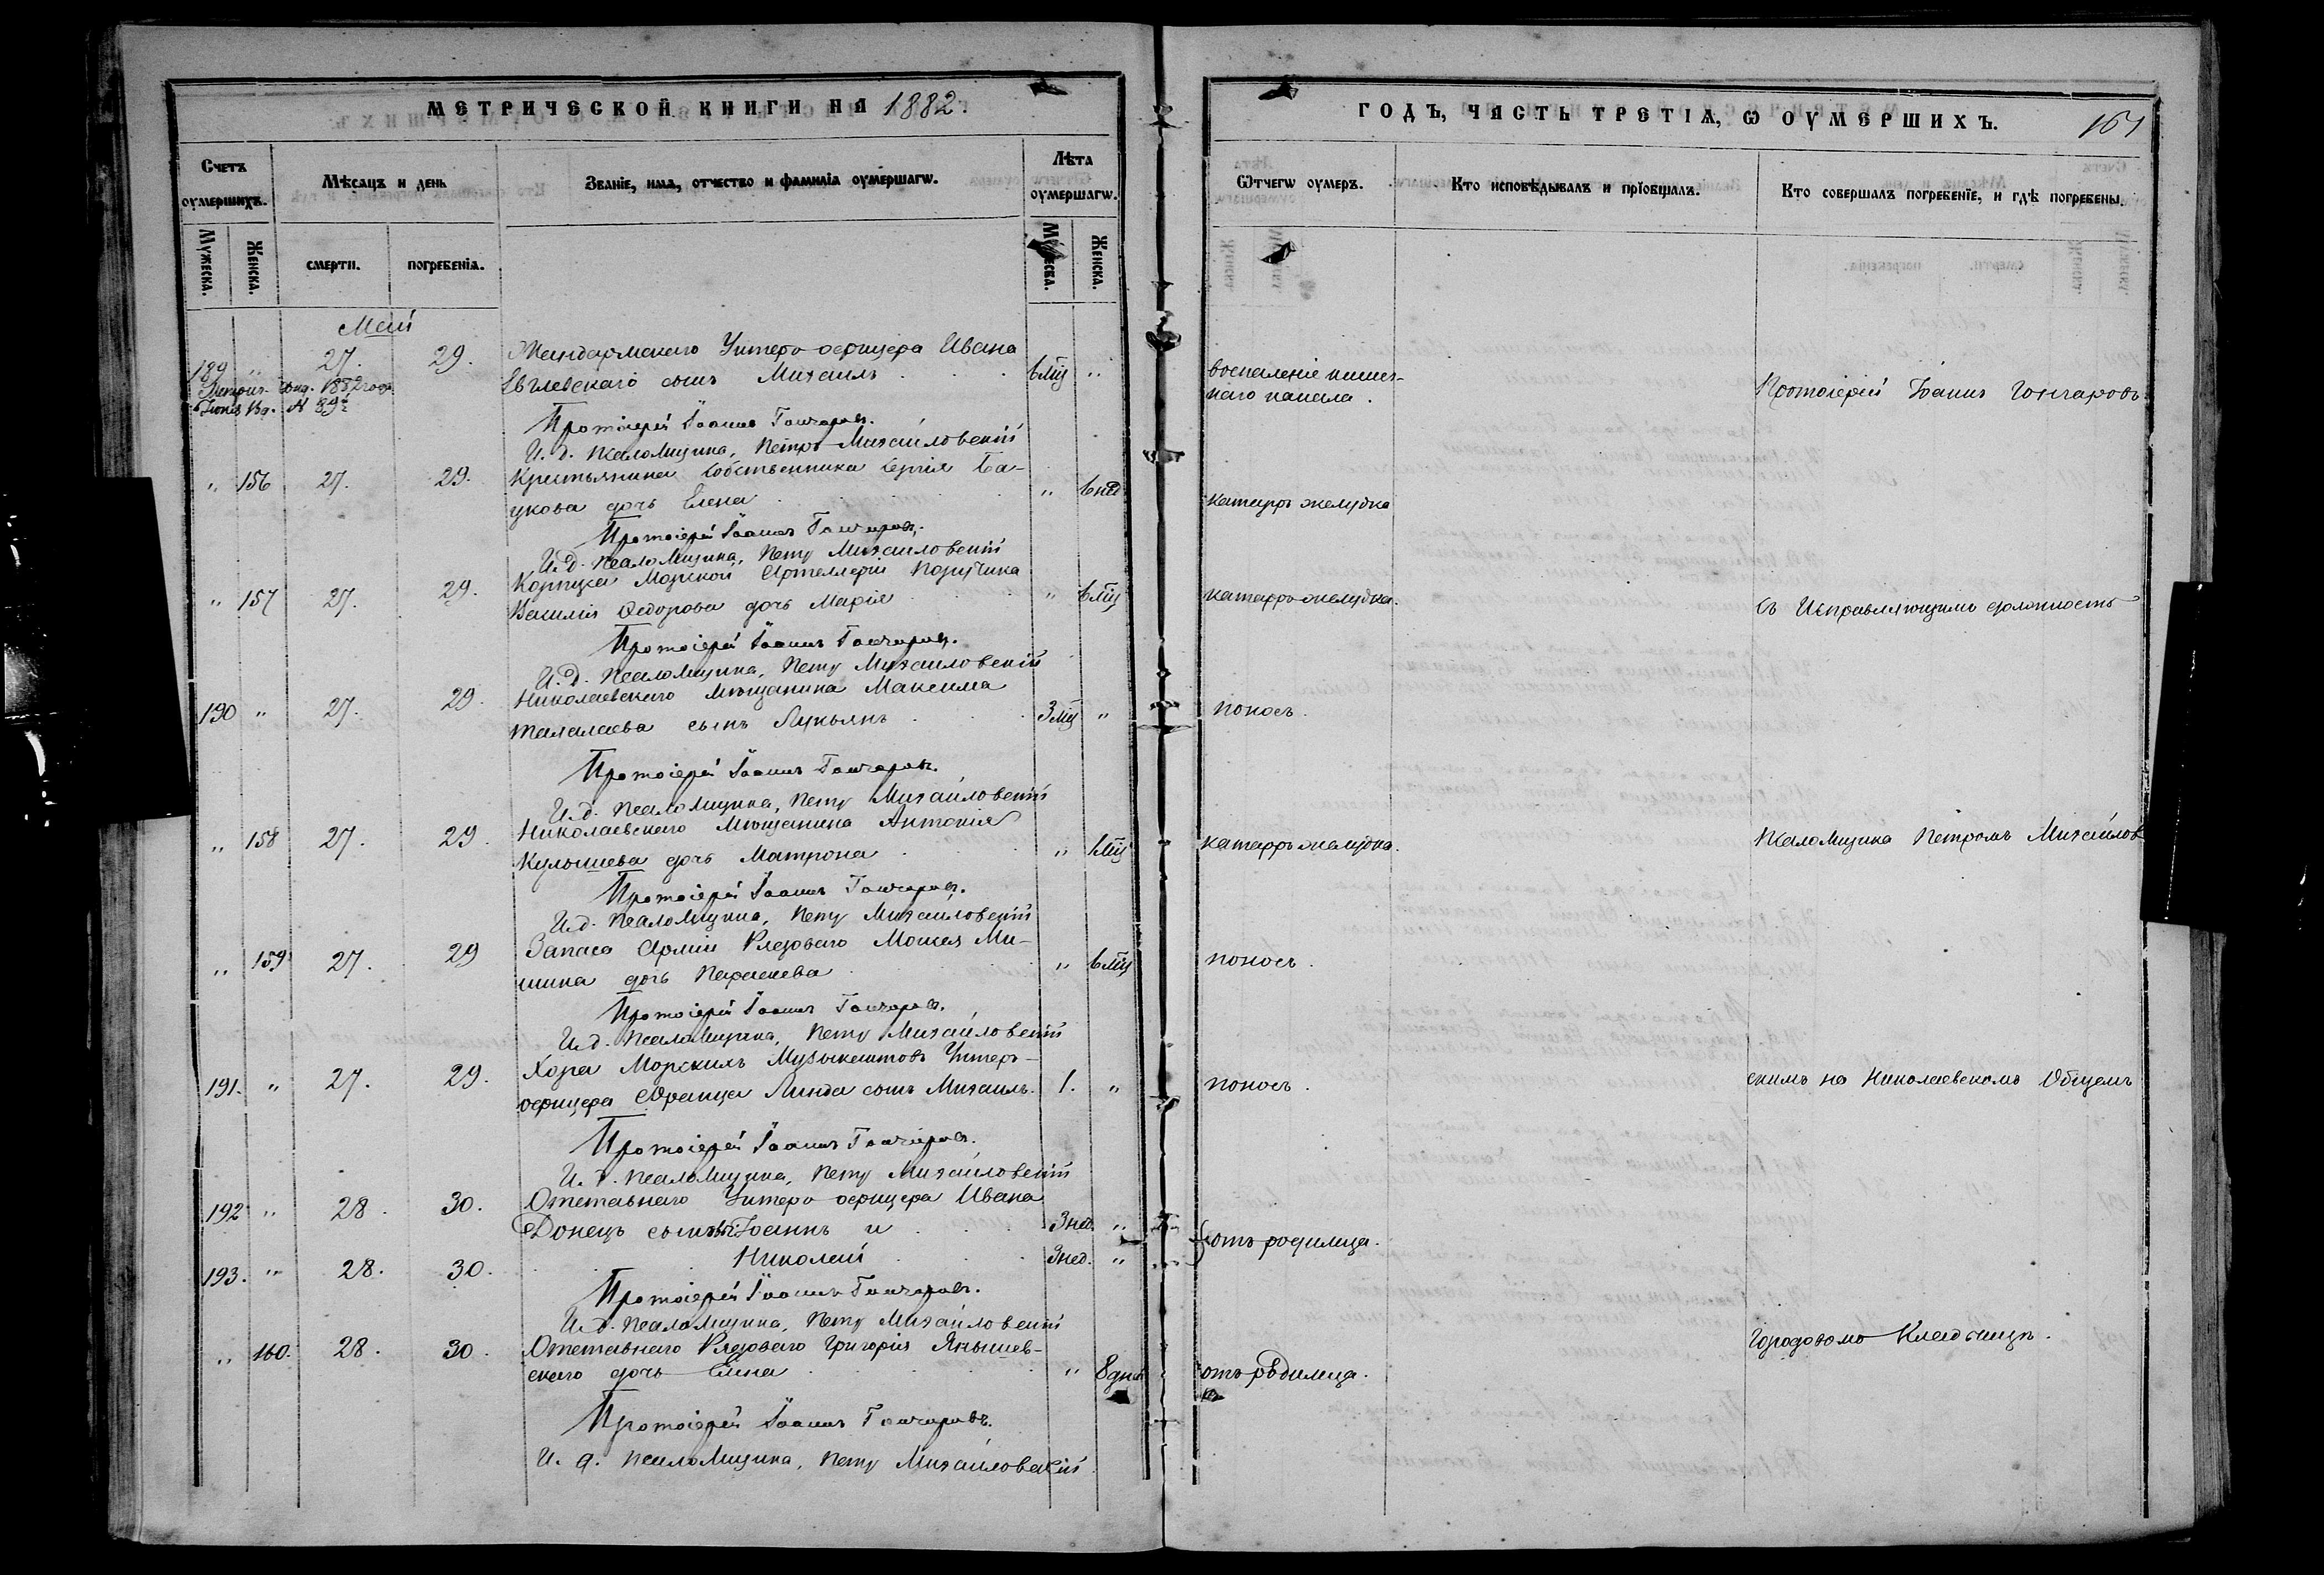 МЕТРИЧЕСКОЙ КНИГИ НА 1882.
Счетъ оумершихъ.
Мѣсяцъ и день
Званіе, имя, отчество и фамилія оумершагѡ.
Лѣта оумершагѡ.
Мужеска.
Женска.
смерти.
погребенія.
Мужеска.
Женска.
Май
189 " 27. 29. Жандармскаго Унтеръ-офицера Ивана
сынъ Михаилъ 6 мц "
Протоіерей Іоаннъ Гончаровъ.
И. д. Псаломщика, Петръ Михайловскій
" 156 27. 29. Крестьянина собственника Сергія Ба-
цкова дочь Елена " 6 нед
Протоіерей Іоаннъ Гончаровъ.
И. д. Псаломщика, Петръ Михайловскій
" 157 27. 29. Корпуса Морской Артеллеріи Поручика
Василія Ѳедорова дочь Марія " 6 мц
Протоіерей Іоаннъ Гончаровъ.
И. д. Псаломщика, Петръ Михайловскій
190 " 27. 29. Николаевскаго мѣщанина Максима
Талалаева сынъ Лукьянъ 3 мц "
Протоіерей Іоаннъ Гончаровъ.
И. д. Псаломщика, Петръ Михайловскій
" 158 27. 29. Николаевскаго мѣщанина Антонія
Кулышева дочь Матрона "
Протоіерей Іоаннъ Гончаровъ.
И. д. Псаломщика, Петръ Михайловскій
" 159 27. 29 Запаса Арміи Рядоваго Моисея Ми-
шина дочь Параскева " 6 мц
Протоіерей Іоаннъ Гончаровъ.
И. д. Псаломщика, Петръ Михайловскій
191. " 27. 29. Хора Морскихъ Музыкантовъ Унтеръ-
офицера Франца Линда сынъ Михаилъ. 1. "
Протоіерей Іоаннъ Гончаровъ.
И. д. Псаломщика, Петръ Михайловскій
192 " 28. 30. Отставнаго Унтеръ-офицера Ивана
Донецъ сыновья: Іоаннъ и 3 нед. "
193. " 28. 30. Николай 3 нед. "
Протоіерей Іоаннъ Гончаровъ.
И. д. Псаломщика, Петръ Михайловскій
" 160. 28. 30. Отставнаго Рядоваго Григорія Янышев-
скаго дочь Елена " 8 дней
Протоіерей Іоаннъ Гончаровъ.
И. д. Псаломщика, Петръ Михайловскій
ГОДЪ, ЧАСТЬ ТРЕТІЯ, Ѡ ОУМЕРШИХЪ.
161
Ѿчегѡ оумеръ.
Кто исповѣдывалъ и пріобщалъ.
Кто совершалъ погребеніе, и гдѣ погребены.
воспаленіе кишеч-
наго канала.
Протоіерей Іоаннъ Гончаровъ
катарръ желудка
катарръ желудка.
съ Исправляющимъ должность
поносъ.
катарръ желудка.
Псаломщика Петромъ Михайлов-
поносъ.
поносъ.
скимъ на Николаевскомъ Общемъ
отъ родимца.
Городовомъ Кладбищѣ.
отъ родимца.